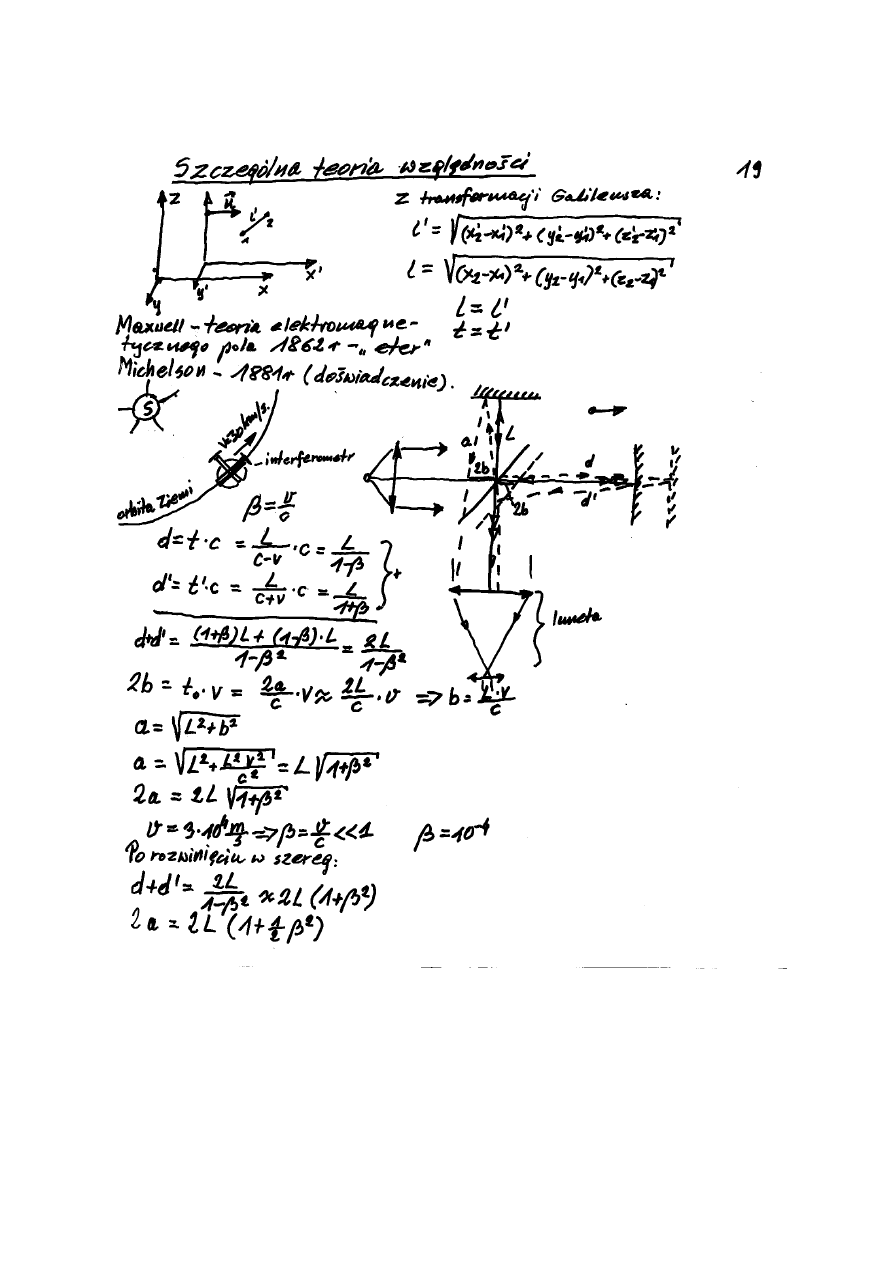 Szczególna teoria względności 19
z u⃗ l' 1 2 x' x y' y
Z transformacji Galileusza:
l' = √(x₂'-x₁')²+(y₂'-y₁')²+(z₂'-z₁')²
l = √(x₂-x₁)²+(y₂-y₁)²+(z₂-z₁)²
l = l'
t = t'
Maxwell – teoria elektromagne-
tycznego pola 1862 r – „eter”
Michelson – 1881r (doświadczenie).
S
v=30km/s.
interferometr
orbita Ziemi
a L 2b d d' 2b
luneta
β = v/c
d = t·c = L/(c-v) ·c = L/(1-β)
d' = t'·c = L/(c+v) ·c = L/(1+β) } +
d+d' = ((1+β)L + (1-β)·L)/(1-β²) = 2L/(1-β²)
2b = t₀·v = 2a/c ·v ≈ 2L/c ·v => b = L·v/c
a = √L²+b²
a = √L²+L²v²/c² = L√1+β²
2a = 2L√1+β²
v = 3·10⁴ m/s => β = v/c << 1 β = 10⁻⁴
Po rozwinięciu w szereg:
d+d' = 2L/(1-β²) ≈ 2L(1+β²)
2a = 2L(1+½β²)